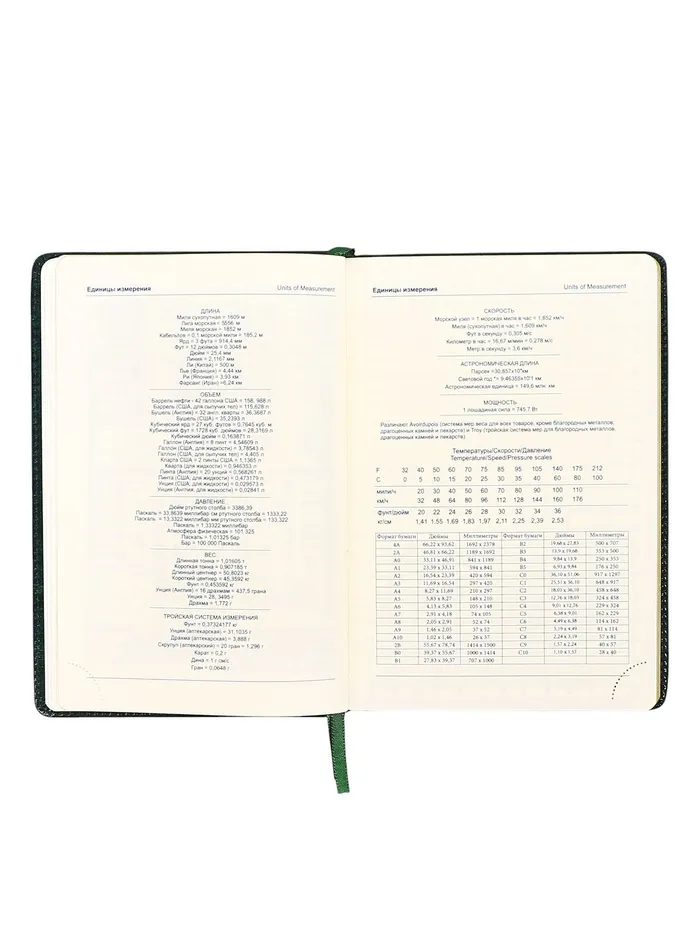 Единицы измерения Units of Measurement
ДЛИНА
Миля сухопутная = 1609 м
Лига морская = 5556 м
Миля морская = 1852 м
Кабельтов = 0,1 морской мили = 185,2 м
Ярд = 3 фута = 914,4 мм
Фут = 12 дюймов = 0,3048 м
Дюйм = 25,4 мм
Линия = 2,1167 мм
Ли (Китай) = 500 м
Лье (Франция) = 4,44 км
Ри (Япония) = 3,93 км
Фарсанг (Иран) =6,24 км
ОБЪЕМ
Баррель нефти - 42 галлона США = 158, 988 л
Баррель (США, для сыпучих тел) = 115,628 л
Бушель (Англия) = 32 англ. кварты = 36,3687 л
Бушель (США) = 35,2393 л
Кубический ярд = 27 куб. футов = 0,7645 куб. м
Кубический фут = 1728 куб. дюймов = 28,3169 л
Кубический дюйм = 0,163871 л
Галлон (Англия) = 8 пинт = 4,54609 л
Галлон (США, для жидкости) = 3,78543 л
Галлон (США, для сыпучих тел) = 4,405 л
Кварта США = 2 пинты США = 1,1365 л
Кварта (для жидкости) = 0,946353 л
Пинта (Англия) = 20 унций = 0,568261 л
Пинта (США, для жидкости) = 0,473179 л
Унция (США, для жидкости) = 0,029573 л
Унция (Англия, для жидкости) = 0,02841 л
ДАВЛЕНИЕ
Дюйм ртутного столба = 3386,39
Паскаль = 33,8639 миллибар см ртутного столба = 1333,22
Паскаль = 13,3322 миллибар мм ртутного столба = 133,322
Паскаль = 1,33322 миллибар
Атмосфера физическая = 101,325
Паскаль = 1,01325 бар
Бар = 100 000 Паскаль
ВЕС
Длинная тонна = 1,01605 т
Короткая тонна = 0,907185 т
Длинный центнер = 50,8023 кг
Короткий центнер = 45,3592 кг
Фунт = 0,453592 кг
Унция (Англия) = 16 драхмам = 437,5 грана
Унция = 28, 3495 г
Драхма = 1,772 г
ТРОЙСКАЯ СИСТЕМА ИЗМЕРЕНИЯ
Фунт = 0,37324177 кг
Унция (аптекарская) = 31,1035 г
Драхма (аптекарская) = 3,888 г
Скрупул (аптекарский) = 20 гран = 1,296 г
Карат = 0,2 г
Дина = 1 г см/с
Гран = 0,0648 г
Единицы измерения Units of Measurement
СКОРОСТЬ
Морской узел = 1 морская миля в час = 1,852 км/ч
Миля (сухопутная) в час = 1,609 км/ч
Фут в секунду = 0,305 м/с
Километр в час = 16,67 м/мин = 0,278 м/с
Метр в секунду = 3,6 км/ч
АСТРОНОМИЧЕСКАЯ ДЛИНА
Световой год
Астрономическая единица = 149,6 млн. км
МОЩНОСТЬ
1 лошадиная сила = 745,7 Вт
Различают Avoirdupois (система мер веса для всех товаров, кроме благородных металлов,
драгоценных камней и лекарств) и Troy (тройская система мер для благородных металлов,
драгоценных камней и лекарств)
Температуры/Скорости/Давление
Temperature/Speed/Pressure scales
F 32 40 50 60 70 75 85 95 105 140 175 212
C 0 5 10 15 20 25 30 35 40 60 80 100
мили/ч 20 30 40 50 60 70 80 90 100 110
км/ч 32 48 64 80 96 112 128 144 160 176
фунт/дюйм 20 22 24 26 28 30 32 34 36
кг/см 1,41 1,55 1,69 1,83 1,97 2,11 2,25 2,39 2,53
Формат бумаги Дюймы Миллиметры Формат бумаги Дюймы Миллиметры
4A 66,22 x 93,62 1692 x 2378 B2 19,68 x 27,83 500 x 707
2A 46,81 x 66,22 1189 x 1692 B3 13,9 x 19,68 353 x 500
A0 33,11 x 46,91 841 x 1189 B4 9,84 x 13,9 250 x 353
A1 23,39 x 33,11 594 x 841 B5 6,93 x 9,84 176 x 250
A2 16,54 x 23,39 420 x 594 C0 36,10 x 51,06 917 x 1297
A3 11,69 x 16,54 297 x 420 C1 25,51 x 36,10 648 x 917
A4 8,27 x 11,69 210 x 297 C2 18,03 x 36,10 458 x 648
A5 5,83 x 8,27 148 x 210 C3 12,76 x 18,03 324 x 458
A6 4,13 x 5,83 105 x 148 C4 9,01 x 12,76 229 x 324
A7 2,91 x 4,18 74 x 105 C5 6,38 x 9,01 162 x 229
A8 2,05 x 2,91 52 x 74 C6 4,49 x 6,38 114 x 162
A9 1,46 x 2,05 37 x 52 C7 3,19 x 4,49 81 x 114
A10 1,02 x 1,46 26 x 37 C8 2,24 x 3,19 57 x 81
2B 55,67 x 78,74 1414 x 1500 C9 1,57 x 2,24 40 x 57
B0 39,37 x 55,67 1000 x 1414 C10 1,10 x 1,57 28 x 40
B1 27,83 x 39,37 707 x 1000